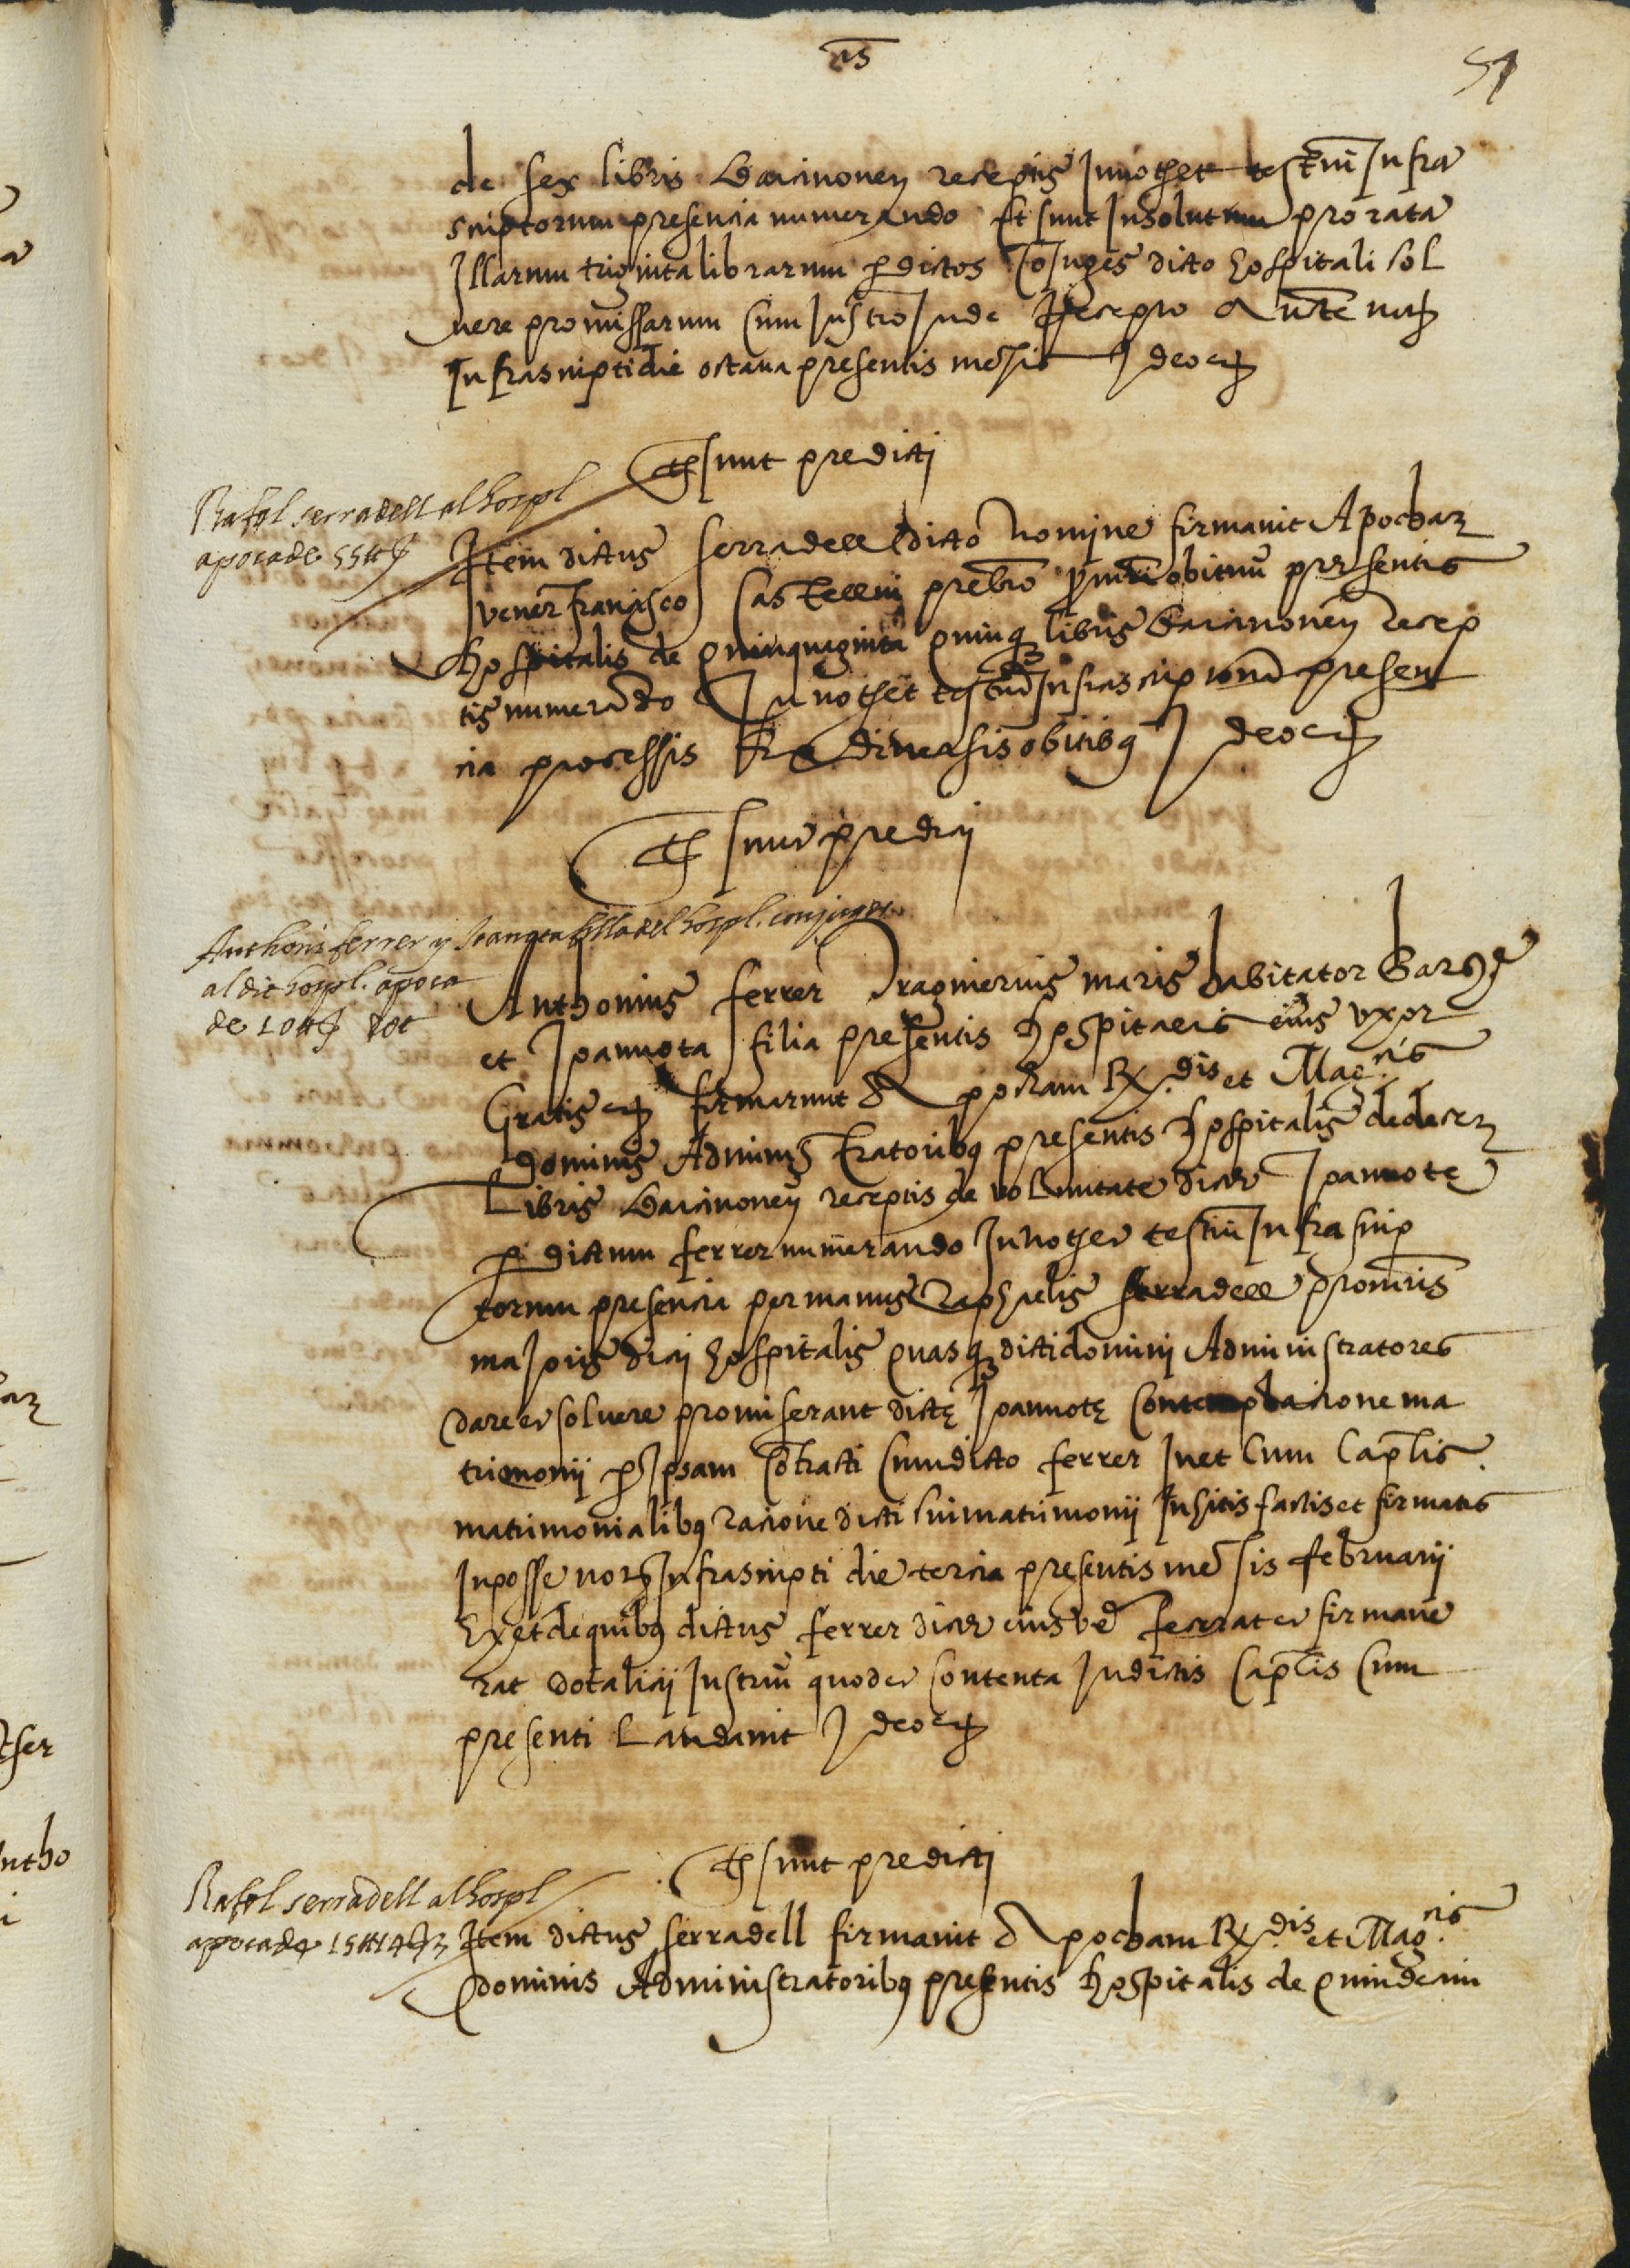 51
de sex libris Barcinonen receptis In not et testiu Infra
scriptorum presencia numerando Et sunt In solutum pro rata
Illarum triginta librarum p dictos Coiuges dicto hospitali sol
vere promissarum cum Instro Inde recepto
Infrascripti die octava presentis mesis Ideo etc
Ts sunt predicti
Rafel serradell al hospl
apoca de 55 ℔
Item dictus serradell dicto nomine firmavit Apocham
vener Francisco Castelln prebro obituu presentis
hospitalis de quinquaginta quinq libris Barcinonen recep
tis numerado In not et testiu Infrascriptoru presen
cia processis Ex diversis obitibq Ideo etc
Ts sunt predicti
Anthoni ferrer y Joanota filla del hospl. conjuges
al dit hospl. apoca
de 10 ℔ dot
Anthonius ferrer Draguerius maris habitator Barne
et Joannota filia presentis hospitalis eius uxor
Gratis etc firmarunt Apocham Rx.dis et Mag.cis
dominis Administratoribq presentis hospitalis de decem
Libris Barcinonen receptis de voluntate dicte Joannote
p dictum ferrer numerando In not et testiu Infrascrip
torum presencia per manus Raphaelis serradell prioris
majoris dicti hospitalis quasq dicti domini Administratores
dare et solvere promiserant dicte Joannote Contemplacione ma
trimonii p Ipsam Cotracti cum dicto ferrer In et Cum Caplis
matrimonialibq racione dicti sui matrimonii Inhitis factis et firmatis
In posse not Infrascripti die tercia presentis mesis februarii
Ex et de quibq dictus ferrer dicte eius firmave
rat dotalicii Instru quod et contenta In dictis Caplis Cum
presenti Laudavit Ideo etc
Ts sunt predicti
Rafel serradell al hospl
apoca de 15 ℔ 14
Item dictus serradell firmavit Apocham Rx.dis et Mag.cis
dominis Administratoribq presentis hospitalis de quindecim